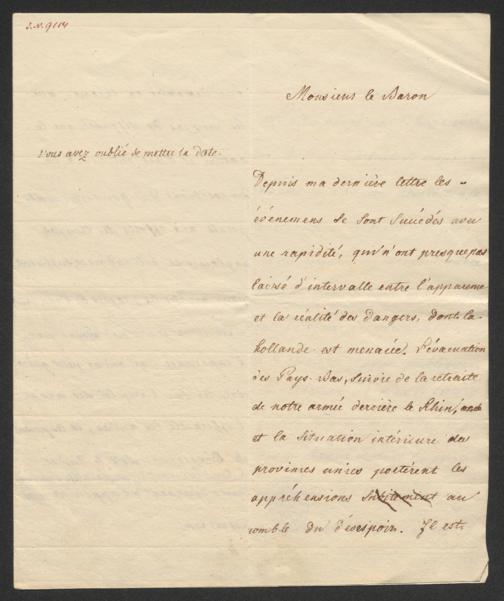 J.N. 9114
Monsieur le Baron
Vous avez oublié de mettre la date.
Depuis ma dernière lettre les
événemens se sont succédés avec
une rapidité, qui n'ont presque pas
laissé d'intervalle entre l'apparence
et la réalité des dangers, dont la
hollande est menacée. L'évacuation
des Pays-Bas, suivie de la retraite
de notre armée derrière le Rhin,
et la situation intérieure des
provinces unies portèrent les
appréhensions subitement au
comble du désespoir. Il est